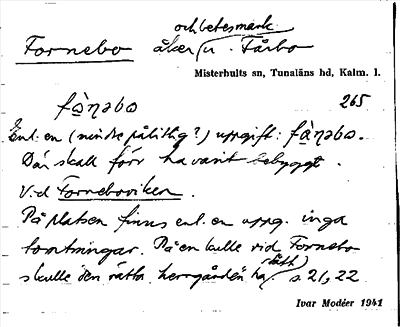 och betesmark
Fornebo åker u. Fårbo
Misterhults sn, Tunaläns hd, Kalm. l.
fà̀ŋəbo 265
Enl. en (mindre pålitlig?) uppgift: fà̀ŋəbo.
Där skall förr ha varit bebyggt.
V. d Forneboviken.
På platsen finns enl. en uppg. inga
tomtningar. På en kulle vid Fornebo
skulle den rätta herrgården ha (stått) s. 21, 22
Ivar Modéer 1941